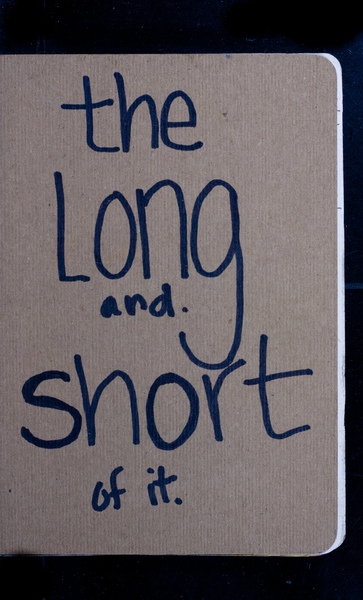 the
Long
and.
short
of it.